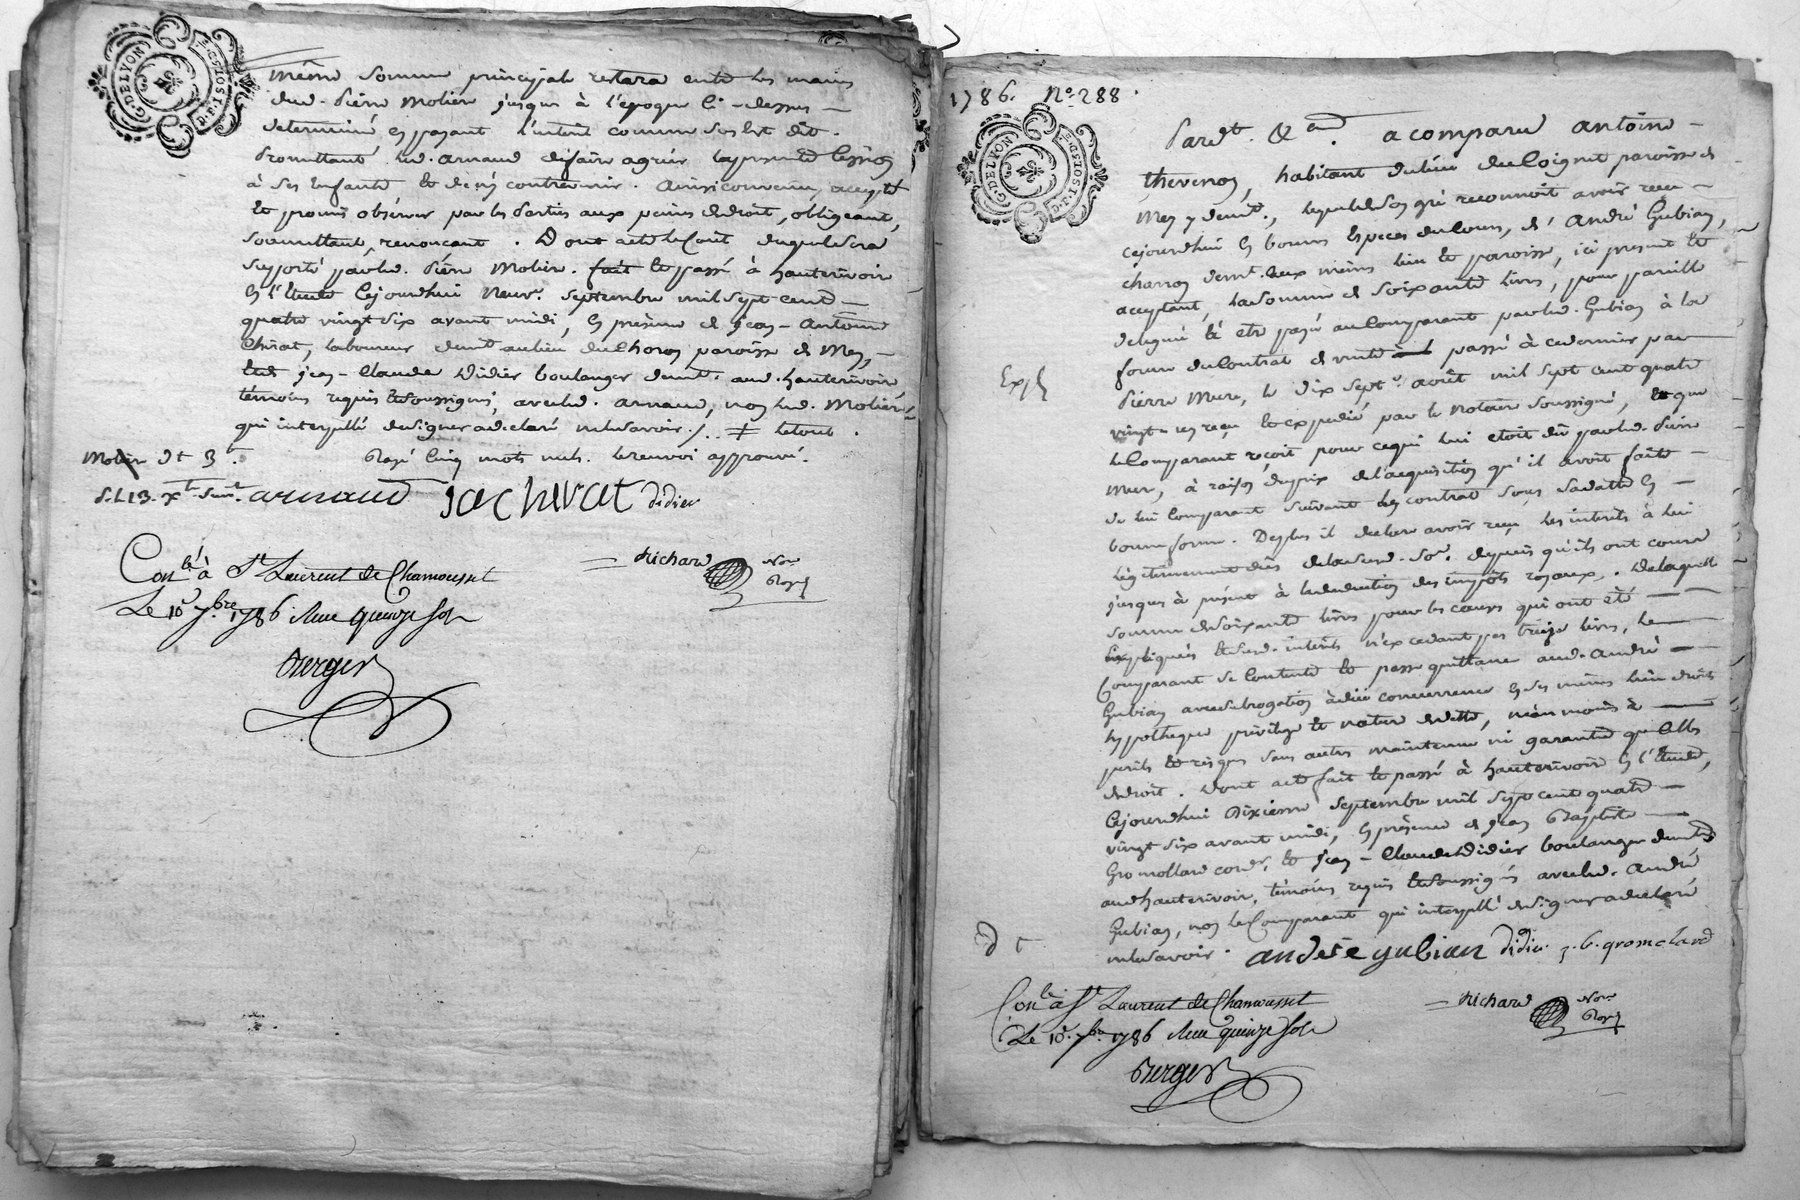 G. DE LYON
D.P. 1 SOL 5 D.
même somme principale restera entre les mains
dud. Pierre Molière jusques à l'epoque ci-dessus
determiné en payant l'interêt comme sus est dit.
Promettant led. arnaud de faire agréer la presente
à ses enfants et de n'y contrevenir. ainsi convenu, accepté
et promis observer par les Parties aux peines de droit, obligeant,
soumettant, renonçant. Dont acte le Cout duquel sera
suporté par led. Pierre Molière. fait et passé à hauterivoire
en l'etude cejourdhui neuv.e septembre mil sept cent
quatre vingt six avant midi, en présence de jean-antoine
Chirat, laboureur demt. au lieu du Choron paroisse de Mey,
et de jean-Claude Didier boulanger demt. aud. hauterivoire
témoins requis et soussignés, avec led. arnaud, non led. Molière
qui interpellé de signer a declaré ne le savoir ./. ≠ le tout.
Rayé Cinq mots nuls. le renvoi approuvé.
arnaud jachirat didier
Conlé à St Laurent de Chamousset
Le 10 7bre 1786 Reçu quinze sols
Richard Nore Royl
Berger
1786. No. 288.
G. DE LYON
D.P. 1 SOL 5 D.
Pardt. &en. a comparu antoine
thevenon, habitant du lieu du Loignet paroisse de
Mey y demt., lequel de son gré reconnoit avoir reçu
cejourdhui en bonnes Especes du Cours, d'André Gubian,
charron demt. aux mêmes lieu et paroisse, ici present et
acceptant, la somme de soixante livres, pour pareille
deleguée à être payée au Comparant par led. Gubian à la
forme du Contrat de vente passé à ce dernier par
Expé
Pierre Mure, le dix sept.e août mil sept cent quatre
vingt-un reçu et expedié par le Notaire soussigné, et que
le Comparant reçoit pour ce qui lui etoit dû par led. Pierre
Mure, à raison du prix de l'acquisition qu'il avoit faite
de lui Comparant suivant le contrat sous sa datte en
bonne forme. De plus il declare avoir reçu les interêts à lui
légitimement dûs de la sud. some. depuis qu'ils ont couru
jusques à présent à la deduction des impôts royaux. De laquelle
somme de soixante livres pour les causes qui ont été
Expliquées et desd. interêts n'excedant pas treize livres, le
Comparant se contente et passe quittance aud. André
Gubian avec subrogation à due concurrence en ses mêmes lieu droits
hypotheque privilege et nature de dette, néanmoins à
perils et risques sans autres maintenue ni garantie que celles
de droit. Dont acte fait et passé à hauterivoire en l'etude,
cejourdhui Dixieme septembre mil sept cent quatre
vingt six avant midi, en présence de jean Baptiste
Gromollard cordr. et jean-Claude Didier boulanger demts
aud. hauterivoire, témoins requis et soussignés avec led. André
Gubian, non le Comparant qui interpellé de signer a declaré
ne le savoir. andre gubian didier j. b. gromolard
Conlé à St Laurent de Chamousset
Le 10 7bre 1786 Reçu quinze sols
Richard Nore Royl
Berger